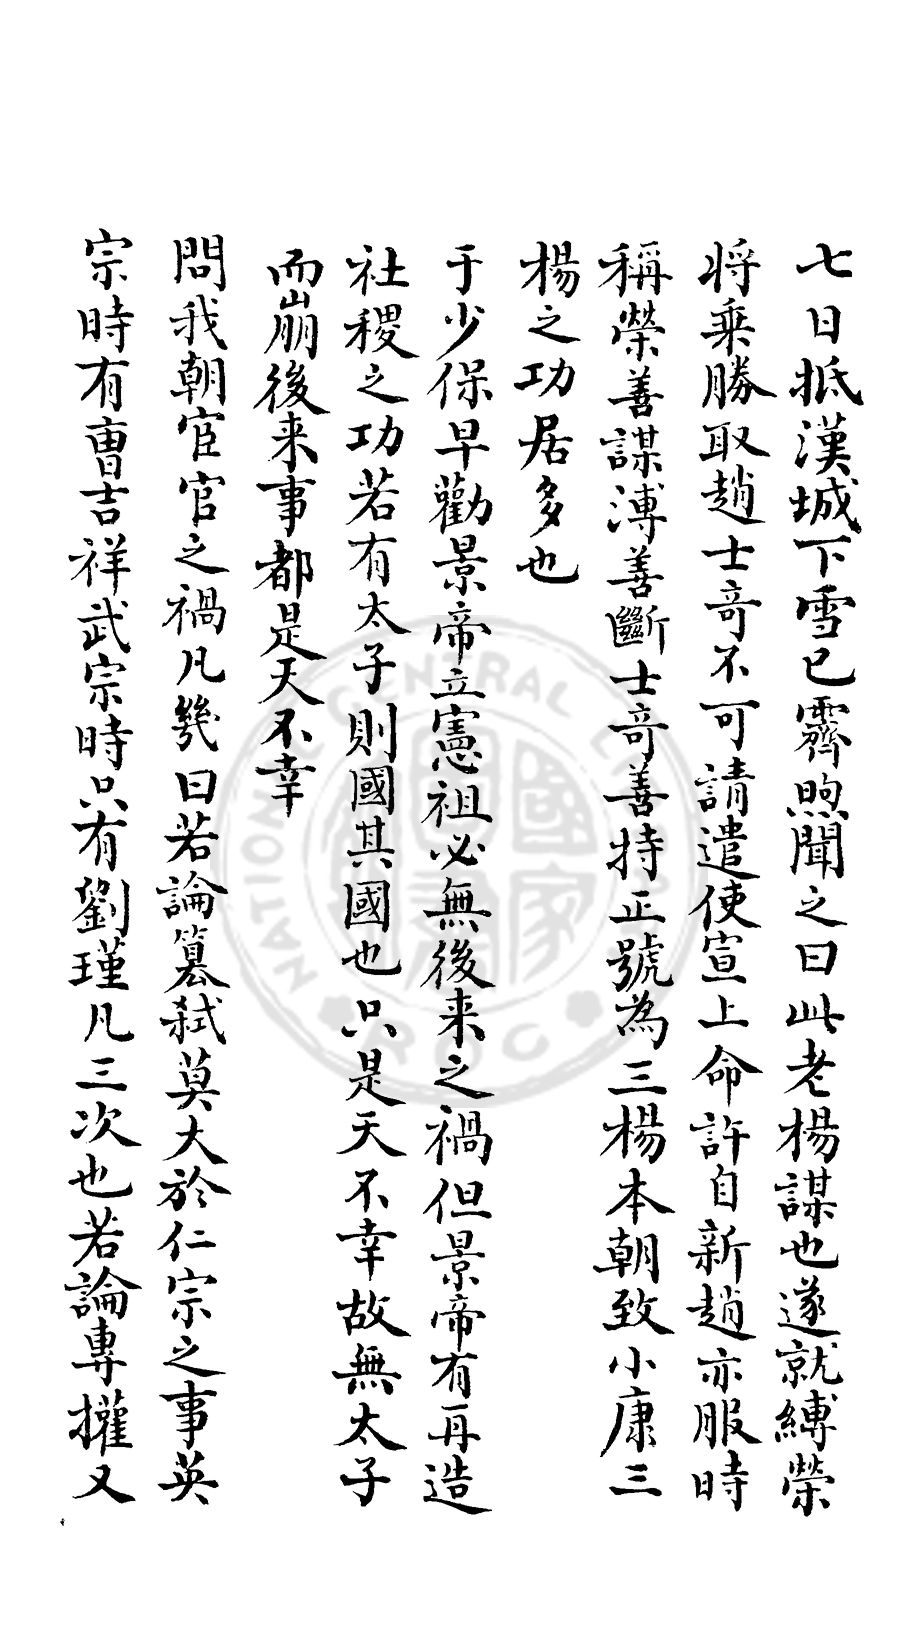 七日抵漢城下雪已霽煦聞之曰此老楊謀也遂就縛榮
将乗勝取趙士竒不可請遣使宣上命許自新趙亦服時
稱榮善謀溥善斷士竒善持正號為三楊本朝致小康三
楊之功居多也
于少保早勸景帝立憲祖必無後来之禍但景帝有再造
社稷之功若有太子則國其國也只是天不幸故無太子
而崩後来事都是天不幸
問我朝宦官之禍凡幾曰若論篡弑莫大於仁宗之事英
宗時有曹吉祥武宗時只有劉瑾凡三次也若論專擅又
NATIONAL CENTRAL LIBRARY
ROC